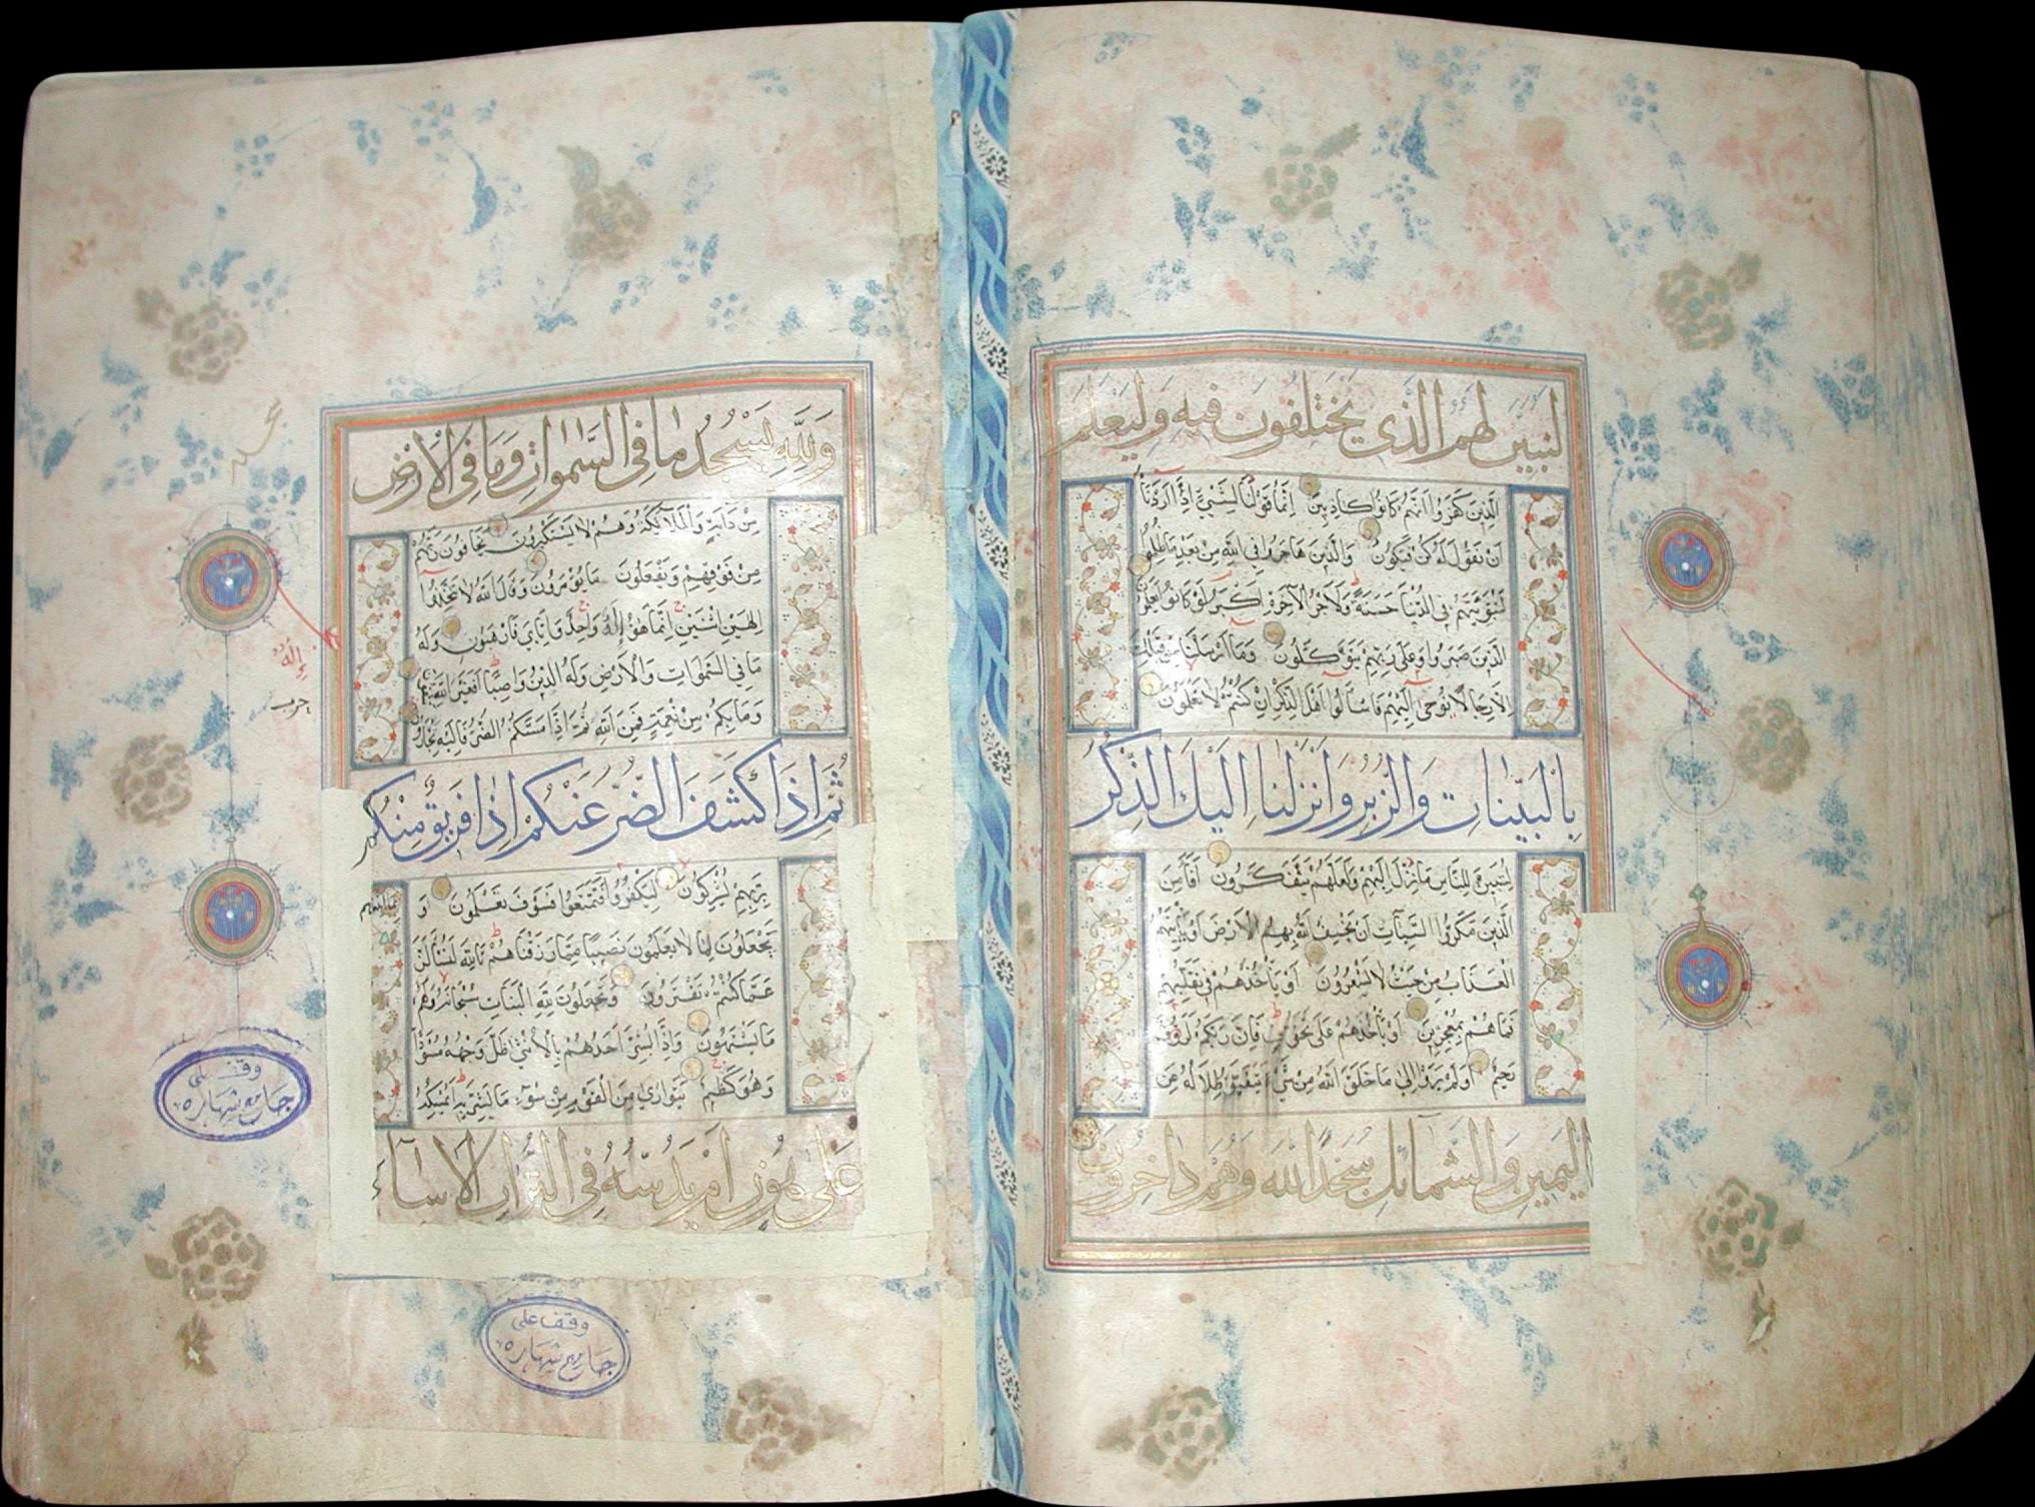 لنبين لهم الذي يختلفون فيه وليعلم
الذين كفروا انهم كانوا كاذبين انما قولنا لشيء اذا اردناه
ان نقول له كن فيكون والذين هاجروا في الله من بعد ما ظلموا
لنبوئنهم في الدنيا حسنة ولاجر الآخرة اكبر لو كانوا يعلمون
الذين صبروا وعلى ربهم يتوكلون وما ارسلنا من قبلك
الا رجالا نوحي اليهم فاسألوا اهل الذكر ان كنتم لا تعلمون
بالبينات والزبر وانزلنا اليك الذكر
لتبين للناس ما نزل اليهم ولعلهم يتفكرون افأمن
الذين مكروا السيئات ان يخسف الله بهم الارض او يأتيهم
العذاب من حيث لا يشعرون او يأخذهم في تقلبهم
فما هم بمعجزين او يأخذهم على تخوف فان ربكم لرؤف
رحيم اولم يروا الى ما خلق الله من شيء يتفيؤ ظلاله عن
اليمين والشمائل سجدا لله وهم داخرون
ولله يسجد ما في السموات وما في الارض
من دابة والملائكة وهم لا يستكبرون يخافون ربهم
من فوقهم ويفعلون ما يؤمرون وقال الله لا تتخذوا
الهين اثنين انما هو إله واحد فاياي فارهبون وله
ما في السموات والارض وله الدين واصبا افغير الله تتقون
وما بكم من نعمة فمن الله ثم اذا مسكم الضر فاليه تجأرون
ثم اذا كشف الضر عنكم اذا فريق منكم
بربهم يشركون ليكفروا فتمتعوا فسوف تعلمون و
يجعلون لما لا يعلمون نصيبا مما رزقناهم تالله لتسألن
عما كنتم تفترون ويجعلون لله البنات سبحانه ولهم
ما يشتهون واذا بشر احدهم بالانثى ظل وجهه مسودا
وهو كظيم يتوارى من القوم من سوء ما بشر به ايمسكه
على هون ام يدسه في التراب الا ساء
إله
وقف على
جامع شهاره
وقف على
جامع شهاره